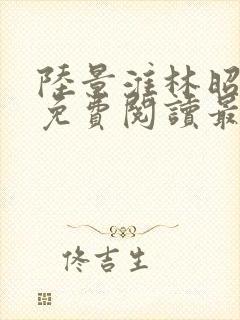 陸景淮林昭
免費閱讀最
佟吉生